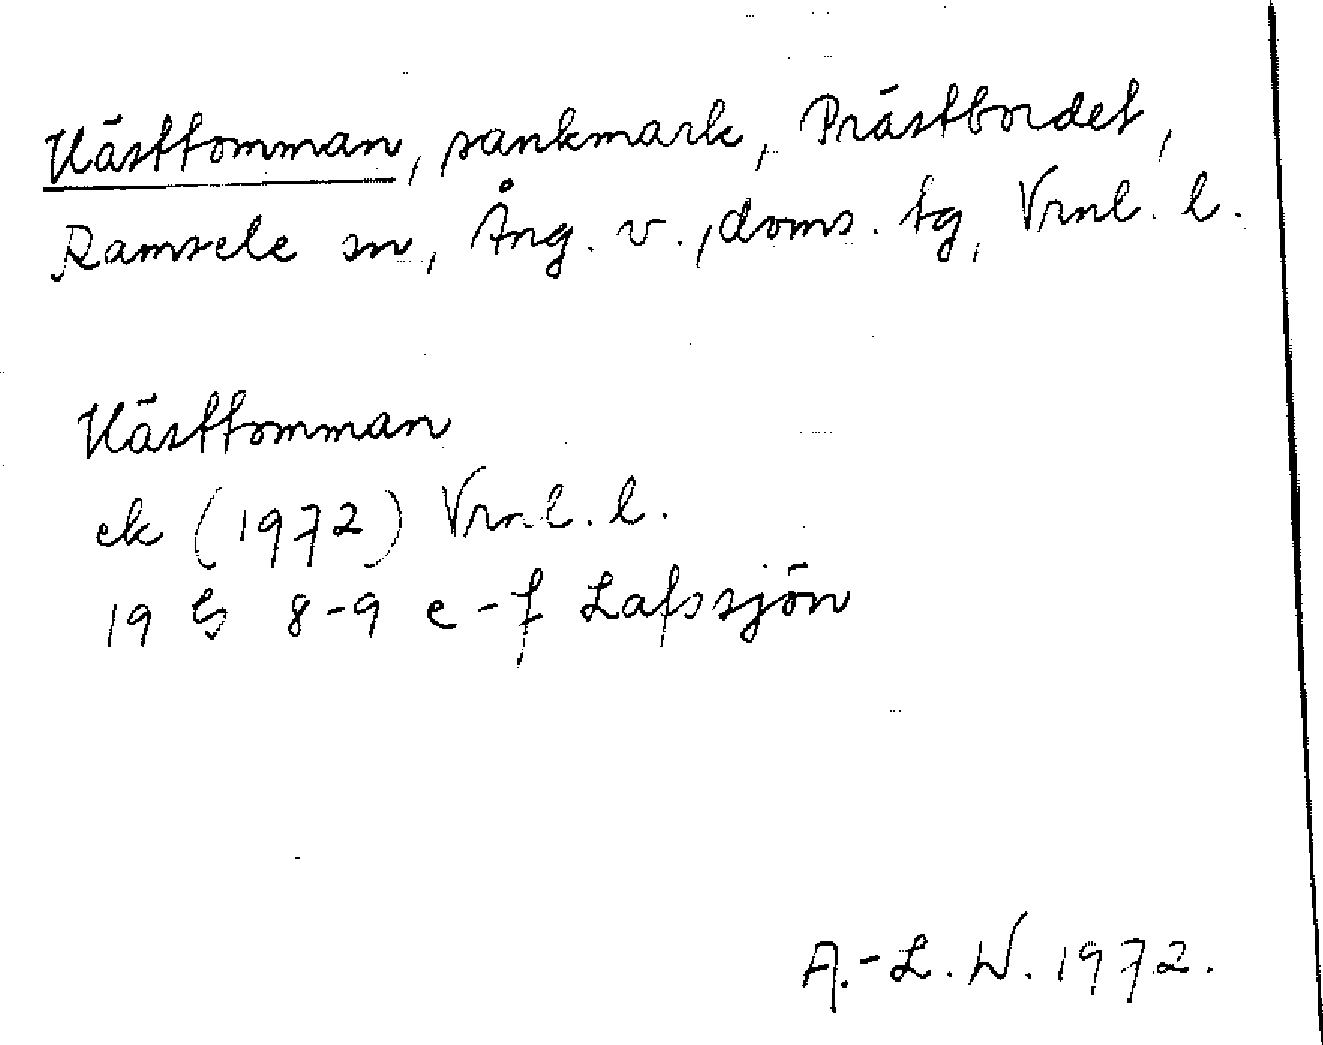 Västtomman, sankmark, Prästbordet,
Ramsele sn, Ång. v., doms. tg, Vrnl. l.
Västtomman
ek (1972) Vrnl. l.
19 G 8-9 e-f Lafssjön
A.-L. W. 1972.